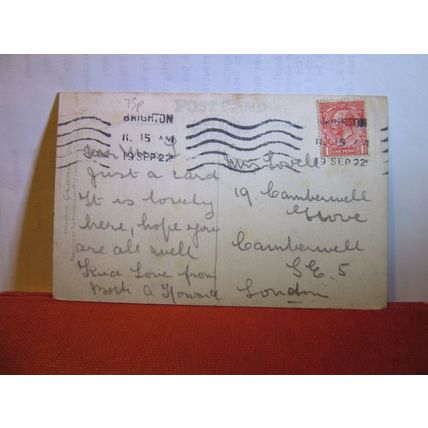 75p
POST CARD
BRIGHTON
11. 15 AM
19 SEP 22
BRIGHTON
11. 15 AM
19 SEP 22
ONE PENNY
Dear
Just a card
It is lovely
here, hope you
are all well
Kind Love from
Both A Howard
Mrs Lovell
19, Camberwell
Grove
Camberwell
S.E. 5
London